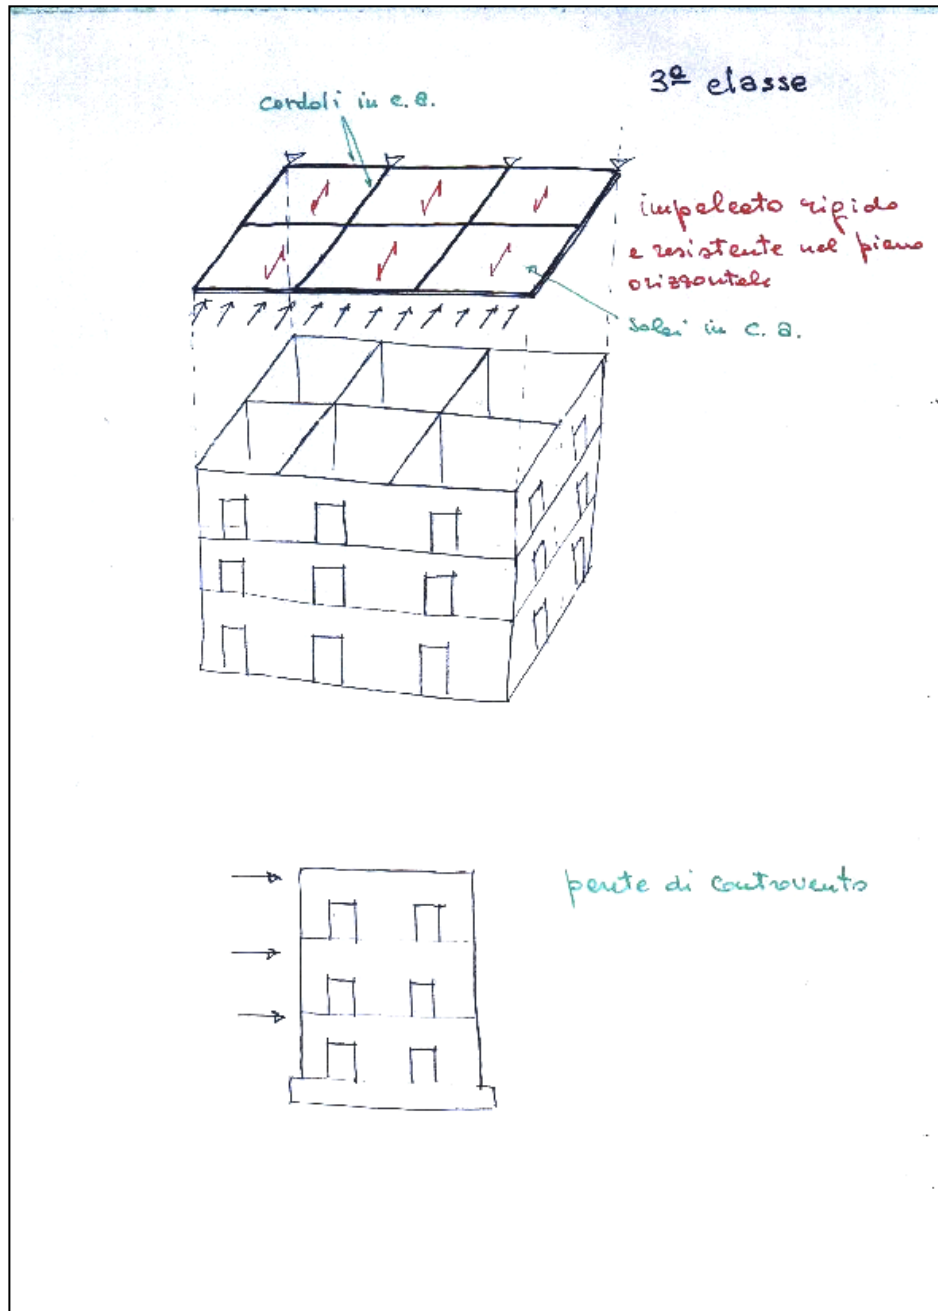 3ª classe
cordoli in c.a.
impalcato rigido
e resistente nel piano
orizzontale
solai in c.a.
parete di controvento